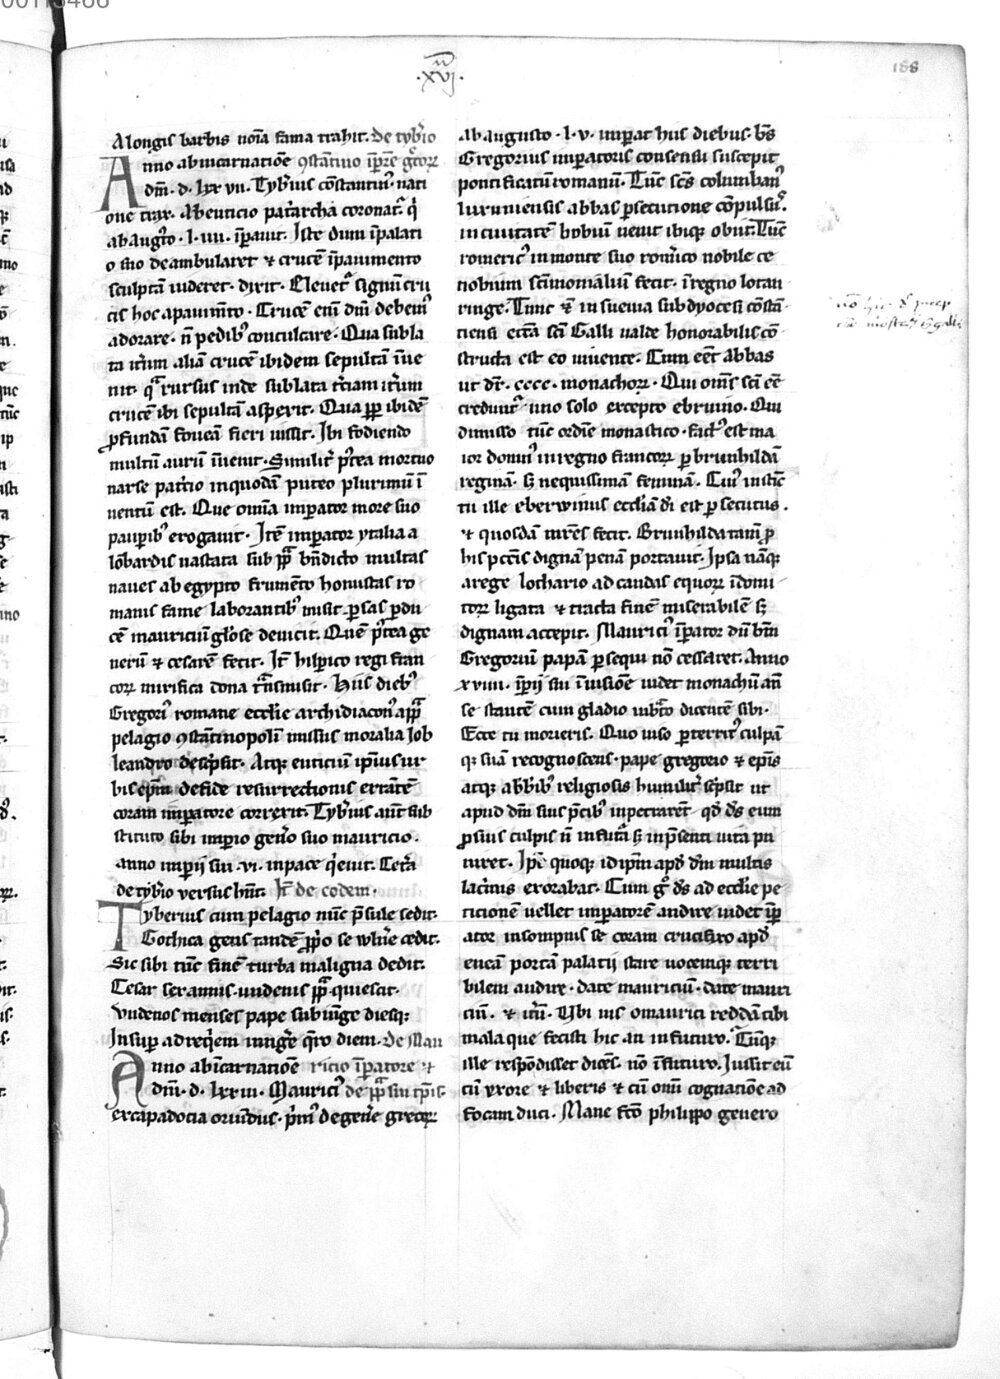 ·XVI·
188
A longis barbis noīa fama trahit. De tyb'io
Anno ab incarnatiōe 9stātino īp̄re gͣcorꝝ
dn̄i · d · lxx vii · Tyb'ius cōstantiu᷒ nati
one trax. Ab euticio pat'archa coronat᷒ q'
ab aug'to · l · iiii · īpauit. Iste dum ī palati
o suo deambularet ⁊ crucē ī pauimento
sculptā uideret · dixit · Cleuet᷒ signū cru
cis hoc a pauim̄to · Crucē eni dn̄i debem᷒
adorare · n̄ pedib᷒ conculcare · Qua subla
ta itɇum aliā crucē ibidem sepultā īue
nit · qͣ rursus inde sublata tciam itɇum
crucē ibi sepultā asperit · Qua ꝓp ibidē
ꝓfundā foueā fieri iussit. Ibi fodiendo
multū aurū īuenit · Similit' p̄tea mortuo
narse pat'cio in quodā puteo plurimū ī
uentū est. Que omīa imperator more suo
paupib᷒ erogauit · Itē imperator ytalia a
lōbardis uastata sub pp̄ bn̄dicto multas
naues ab egypto frumēto honustas ro
manis fame laborantib᷒ misit · p̱sas p̱du
cē mauriciū gl'ose deuicit. Quē p̄tea ge
nerū ⁊ cesarē fecit · It̄ hilp'ico regi fran
corꝝ mirifica dona tͣnsmisit · Hiis dieb᷒
Gregori᷒ romane eccl'ie archidiacon᷒ a pp̄
pelagio 9stātinopolī missus moralia Iob
leandro desc'psit · Atq; euticiū ip̄ius ur
bis ep̄m de fide resurrectionis errātē
coram imperatore correxit. Tyb'ius aut̄ sub
stituto sibi imp̱io gen'o suo mauricio ·
anno imp̱ii sui · vi · in pace q'euit. Cet'a
de tyb'io versus hn̄t. It̄ de eodem ·
Tyberius cum pelagio nūc p̄sule sedit.
Gothica gens tandē ꝓp'o se wln'e cedit.
Sic sibi tūc finē turba maligna dedit.
Cesar ser annis · undenis pp̄ quiescat.
Vndenos menses pape subiūge diesq;
Insup̱ ad req'em intg̱re q'ro diem · De Mau
Anno ab īcarnatiōe ricio īp̱atore ⁊
dn̄i · d · lxxxiii · Maurici᷒ de pp̄ sui tp̱is.
ex capadocia oriūdus · p'm᷒ de gen'e grecorꝝ
ab augusto · l · v · imp̱at hiis diebus · bs̄
Gregorius imperatoris consensu suscepit
pontificatū romanū · Tūc scs̄ columban᷒
luxuniensis abbas p̱secutione cōpulsu᷒.
in ciuitatē bobiū uenit ibiq; obiit. Tūc
romeric᷒ in monte suo rom'ico nobile ce
nobium sc̄imonialiū fecit · ī regno lotau
ringe · Tunc ⁊ in sueuia sub dyocesi cōstā
tiensi ecc̄a sc̄i Galli ualde honorabilis cō
structa est eo uiuente · Cum eēt abbas
ut dr̄ · cccc · monachorꝝ · Qui om̄s sc̄i eē
credunt᷒ uno solo excepto ebruino · Qui
dimisso tūc ordīe monastico · fact᷒ est ma
ior dom᷒ in regno francorꝝ p̱ brunhildā
reginā · s; nequissimā feminā · Cui᷒ instīc
tu ille eberwinus eccl'iā di est p̱secutus.
⁊ quosdā mr̄es fecit. Brunhilda tam̄ ꝓ
his pcc̄is dignā penā portauit. Ipsa nāq;
a rege lothario ad caudas equorꝝ īdomi
torꝝ ligata ⁊ tracta finē miserabilē s;
dignam accepit. Maurici᷒ īp̱ator dū bm̄
Gregoriū papā p̱sequi nō cessaret. Anno
xviiii · īp̱ii sui ī uisiōe uidet monachū an̄
se stantē cum gladio u'b'to dicentē sibi ·
Ecce tu morieris. Quo uiso p̱territ᷒ culpā
q; suā recognoscens · pape gregorio ⁊ ep̄is
atq; abb'ib᷒ religiosis humilit' sc'psit ut
apud dm̄ suis p̄cib᷒ inpetrarēt qd̄ ds̄ eum
ꝓ suis culpis n̄ in fut'a s; in p̄senti uita pu
niret · Ip̄e quoq; id ip̄m ap̄d dm̄ multis
lac'mis exorabat. Cum g° ds̄ ad eccl'ie pe
ticionē uellet imperatorē audire uidet īp̱
ator in sompnis se coram crucifixo ap̄d
eneā portā palacii stare uocemq; terri
bilem audire · date mauriciū · date mauri
ciū · ⁊ it̄m · Vbi uis o maurici reddā tibi
mala que fecisti hic an in futuro · Tūq;
ille respōdisset dices̄ · nō ī futuro. Iussit eū
cū vxore ⁊ liberis ⁊ cū omī cognatiōe ad
focam duci · Mane fc̄o philippo genero